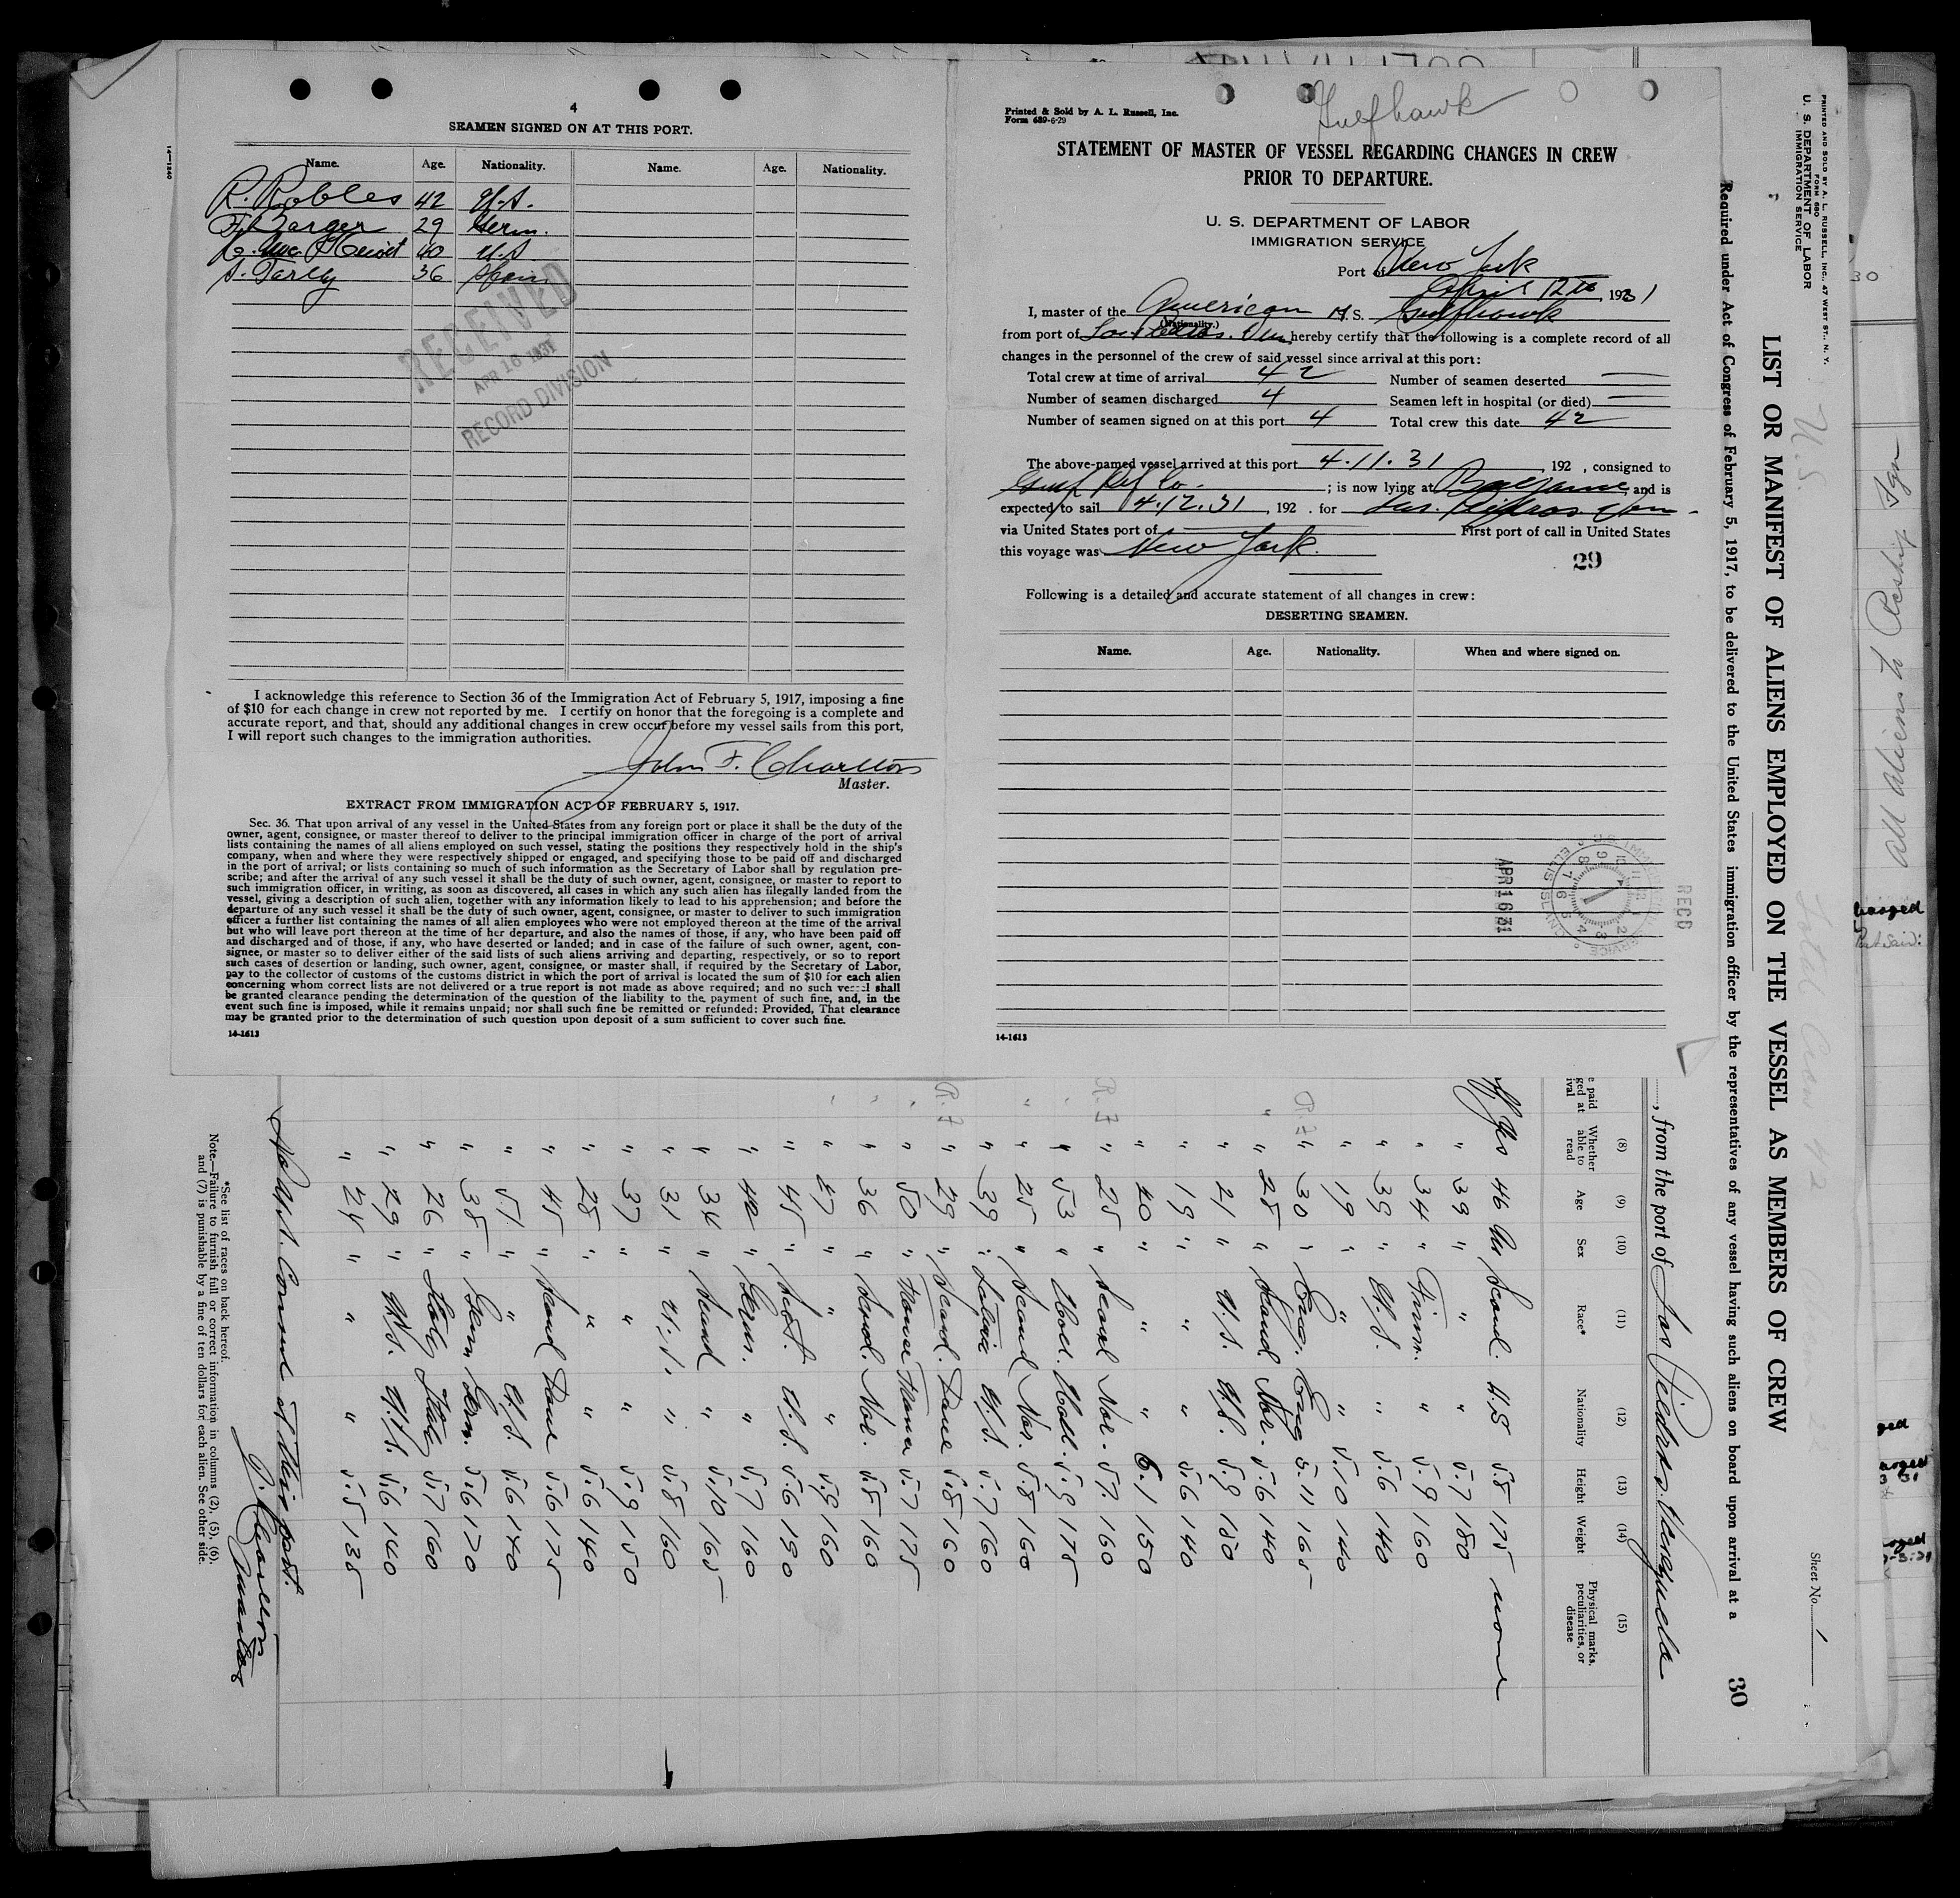 4
SEAMEN SIGNED ON AT THIS PORT.
Name. Age. Nationality. Name. Age. Nationality.
R. Robles 42 U.S.
F. Berger 29 Germ.
40 U.S.
36 Spain
RECEIVED
APR 16 1931
RECORD DIVISION
I acknowledge this reference to Section 36 of the Immigration Act of February 5, 1917, imposing a fine
of $10 for each change in crew not reported by me. I certify on honor that the foregoing is a complete and
accurate report, and that, should any additional changes in crew occur before my vessel sails from this port,
I will report such changes to the immigration authorities.
John F. Charlton
Master.
EXTRACT FROM IMMIGRATION ACT OF FEBRUARY 5, 1917.
Sec. 36. That upon arrival of any vessel in the United States from any foreign port or place it shall be the duty of the
owner, agent, consignee, or master thereof to deliver to the principal immigration officer in charge of the port of arrival
lists containing the names of all aliens employed on such vessel, stating the positions they respectively hold in the ship's
company, when and where they were respectively shipped or engaged, and specifying those to be paid off and discharged
in the port of arrival; or lists containing so much of such information as the Secretary of Labor shall by regulation pre-
scribe; and after the arrival of any such vessel it shall be the duty of such owner, agent, consignee, or master to report to
such immigration officer, in writing, as soon as discovered, all cases in which any such alien has illegally landed from the
vessel, giving a description of such alien, together with any information likely to lead to his apprehension; and before the
departure of any such vessel it shall be the duty of such owner, agent, consignee, or master to deliver to such immigration
officer a further list containing the names of all alien employees who were not employed thereon at the time of the arrival
but who will leave port thereon at the time of her departure, and also the names of those, if any, who have been paid off
and discharged and of those, if any, who have deserted or landed; and in case of the failure of such owner, agent, con-
signee, or master so to deliver either of the said lists of such aliens arriving and departing, respectively, or so to report
such cases of desertion or landing, such owner, agent, consignee, or master shall, if required by the Secretary of Labor,
pay to the collector of customs of the customs district in which the port of arrival is located the sum of $10 for each alien
concerning whom correct lists are not delivered or a true report is not made as above required; and no such vessel shall
be granted clearance pending the determination of the question of the liability to the payment of such fine, and, in the
event such fine is imposed, while it remains unpaid; nor shall such fine be remitted or refunded: Provided, That clearance
may be granted prior to the determination of such question upon deposit of a sum sufficient to cover such fine.
14-1613
Gulfhawk
Printed & Sold by A. L. Russell, Inc.
Form 689-6-29
STATEMENT OF MASTER OF VESSEL REGARDING CHANGES IN CREW
PRIOR TO DEPARTURE.
U. S. DEPARTMENT OF LABOR
IMMIGRATION SERVICE
Port of New York
April 12th, 1931
I, master of the American M.S. Gulfhawk
(Nationality.)
from port of Las Piedras. Ven hereby certify that the following is a complete record of all
changes in the personnel of the crew of said vessel since arrival at this port:
Total crew at time of arrival 42 Number of seamen deserted —
Number of seamen discharged 4 Seamen left in hospital (or died) —
Number of seamen signed on at this port 4 Total crew this date 42
The above-named vessel arrived at this port 4.11.31, 192 , consigned to
Gulf Ref Co. ; is now lying at Bayonne, and is
expected to sail 4.12.31, 192 . for Las. Piedras Ven.
via United States port of First port of call in United States
this voyage was New York.
29
Following is a detailed and accurate statement of all changes in crew:
DESERTING SEAMEN.
Name. Age. Nationality. When and where signed on.
APR 16 31
RECD
14-1613
PRINTED AND SOLD BY A. L. RUSSELL, INC., 47 WEST ST., N. Y.
FORM 680
U. S. DEPARTMENT OF LABOR
IMMIGRATION SERVICE
Sheet No. 1
LIST OR MANIFEST OF ALIENS EMPLOYED ON THE VESSEL AS MEMBERS OF CREW
Required under Act of Congress of February 5, 1917, to be delivered to the United States immigration officer by the representatives of any vessel having such aliens on board upon arrival at a
30
, from the port of Las Piedras. Venezuela
(8) (9) (10) (11) (12) (13) (14) (15)
Whether able to read Age Sex Race* Nationality Height Weight Physical marks, peculiarities, or disease
Yes 46 Scand. U.S 5.8 175 none
" 39 " " " 5.7 180
" 34 " Finn. " 5.9 160
" 39 " U.S. " 5.6 140
" 19 " " " 5.10 140
" 30 " Eng. Eng 5.11 165
" 25 " Scand. Nor. 5.6 140
" 21 " U.S. U.S. 5.9 180
" 19 " " " 5.6 140
" 20 " " " 6.1 150
" 25 " Scand Nor. 5.7. 160
" 53 " Holl. Holl. 5.9 175
" 25 " Scand Nor. 5.8 160
" 39 " U.S. 5.7 160
" 29 " Scand. Dane 5.8 160
" 50 " 5.7 175
" 36 " Scand. Nor. 5.8 160
" 27 " " " 5.9 160
" 45 " Scot. U.S. 5.6 190
" 42 " Germ. " 5.7 160
" 34 " Scand " 5.10 165
" 31 " U.S. " 5.8 160
" 37 " " " 5.9 150
" 25 " " " 5.6 140
" 45 " Scand Dane 5.6 175
" 51 " " U.S. 5.6 140
" 38 " Germ Germ. 5.6 170
" 26 " Italy Italy 5.7 160
" 29 " U.S. U.S. 5.6 140
" 24 " " " 5.5 135
No U.S. Consul at this port.
J. Charlton
Master
*See list of races on back hereof.
Note.—Failure to furnish full or correct information in columns (2), (5), (6),
and (7) is punishable by a fine of ten dollars for each alien. See other side.
14—1240
All Aliens to Reship Sgn